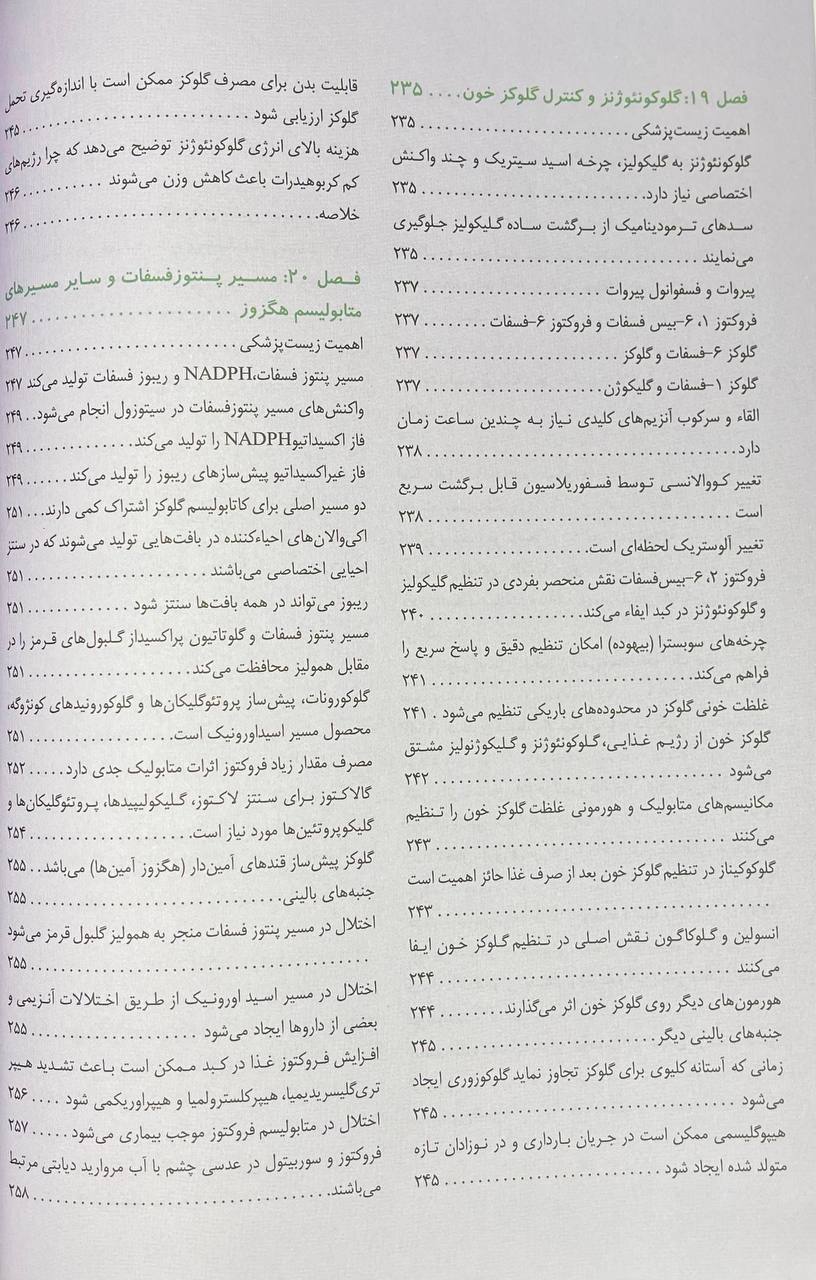 فصل ۱۹: گلوکونئوژنز و کنترل گلوکز خون.... ۲۳۵
اهمیت زیست‌پزشکی........................... ۲۳۵
گلوکونئوژنز به گلیکولیز، چرخه اسید سیتریک و چند واکنش
اختصاصی نیاز دارد........................... ۲۳۵
سدهای ترمودینامیک از برگشت ساده گلیکولیز جلوگیری
می‌نمایند ................................... ۲۳۵
پیروات و فسفوانول پیروات .................... ۲۳۷
فروکتوز ۱، ۶-بیس فسفات و فروکتوز ۶-فسفات ........ ۲۳۷
گلوکز ۶-فسفات و گلوکز ...................... ۲۳۷
گلوکز ۱-فسفات و گلیکوژن...................... ۲۳۷
القاء و سرکوب آنزیم‌های کلیدی نیاز به چندین ساعت زمان
دارد........................................ ۲۳۸
تغییر کووالانسی توسط فسفوریلاسیون قابل برگشت سریع
است ....................................... ۲۳۸
تغییر آلوستریک لحظه‌ای است.................... ۲۳۹
فروکتوز ۲، ۶-بیس‌فسفات نقش منحصر بفردی در تنظیم گلیکولیز
و گلوکونئوژنز در کبد ایفاء می‌کند................. ۲۴۰
چرخه‌های سوبسترا (بیهوده) امکان تنظیم دقیق و پاسخ سریع را
فراهم می‌کند................................. ۲۴۱
غلظت خونی گلوکز در محدوده‌های باریکی تنظیم می‌شود . ۲۴۱
گلوکز خون از رژیم غذایی، گلوکونئوژنز و گلیکوژنولیز مشتق
می‌شود .................................... ۲۴۲
مکانیسم‌های متابولیک و هورمونی غلظت گلوکز خون را تنظیم
می‌کنند .................................... ۲۴۳
گلوکوکیناز در تنظیم گلوکز خون بعد از صرف غذا حائز اهمیت است
........................................... ۲۴۳
انسولین و گلوکاگون نقش اصلی در تنظیم گلوکز خون ایفا
می‌کنند .................................... ۲۴۴
هورمون‌های دیگر روی گلوکز خون اثر می‌گذارند........ ۲۴۴
جنبه‌های بالینی دیگر........................... ۲۴۵
زمانی که آستانه کلیوی برای گلوکز تجاوز نماید گلوکوزوری ایجاد
می‌شود .................................... ۲۴۵
هیپوگلیسمی ممکن است در جریان بارداری و در نوزادان تازه
متولد شده ایجاد شود .......................... ۲۴۵
قابلیت بدن برای مصرف گلوکز ممکن است با اندازه‌گیری تحمل
گلوکز ارزیابی شود ............................ ۲۴۵
هزینه بالای انرژی گلوکونئوژنز توضیح می‌دهد که چرا رژیم‌های
کم کربوهیدرات باعث کاهش وزن می‌شوند ........... ۲۴۶
خلاصه...................................... ۲۴۶
فصل ۲۰: مسیر پنتوزفسفات و سایر مسیرهای
متابولیسم هگزوز ...................... ۲۴۷
اهمیت زیست‌پزشکی........................... ۲۴۷
مسیر پنتوز فسفات،NADPH و ریبوز فسفات تولید می‌کند ۲۴۷
واکنش‌های مسیر پنتوزفسفات در سیتوزول انجام می‌شود.. ۲۴۹
فاز اکسیداتیوNADPH را تولید می‌کند.............. ۲۴۹
فاز غیراکسیداتیو پیش‌سازهای ریبوز را تولید می‌کند...... ۲۴۹
دو مسیر اصلی برای کاتابولیسم گلوکز اشتراک کمی دارند... ۲۵۱
اکی‌والان‌های احیاءکننده در بافت‌هایی تولید می‌شوند که در سنتز
احیایی اختصاصی می‌باشند ...................... ۲۵۱
ریبوز می‌تواند در همه بافت‌ها سنتز شود ............. ۲۵۱
مسیر پنتوز فسفات و گلوتاتیون پراکسیداز گلبول‌های قرمز را در
مقابل همولیز محافظت می‌کند.................... ۲۵۱
گلوکورونات، پیش‌ساز پروتئوگلیکان‌ها و گلوکورونیدهای کونژوگه،
محصول مسیر اسیداورونیک است.................. ۲۵۱
مصرف مقدار زیاد فروکتوز اثرات متابولیک جدی دارد..... ۲۵۲
گالاکتوز برای سنتز لاکتوز، گلیکولیپیدها، پروتئوگلیکان‌ها و
گلیکوپروتئین‌ها مورد نیاز است................... ۲۵۴
گلوکز پیش‌ساز قندهای آمین‌دار (هگزوز آمین‌ها) می‌باشد.. ۲۵۵
جنبه‌های بالینی............................... ۲۵۵
اختلال در مسیر پنتوز فسفات منجر به همولیز گلبول قرمز می‌شود
........................................... ۲۵۵
اختلال در مسیر اسید اورونیک از طریق اختلالات آنزیمی و
بعضی از داروها ایجاد می‌شود .................... ۲۵۵
افزایش فروکتوز غذا در کبد ممکن است باعث تشدید هیپر
تری‌گلیسریدیمیا، هیپرکلسترولمیا و هیپراوریکمی شود .... ۲۵۶
اختلال در متابولیسم فروکتوز موجب بیماری می‌شود..... ۲۵۷
فروکتوز و سوربیتول در عدسی چشم با آب مروارید دیابتی مرتبط
می‌باشند................................... ۲۵۸